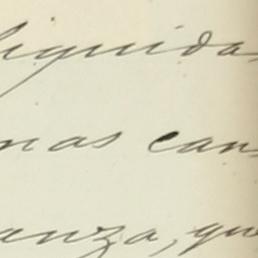 liquida
nas can
anza, que